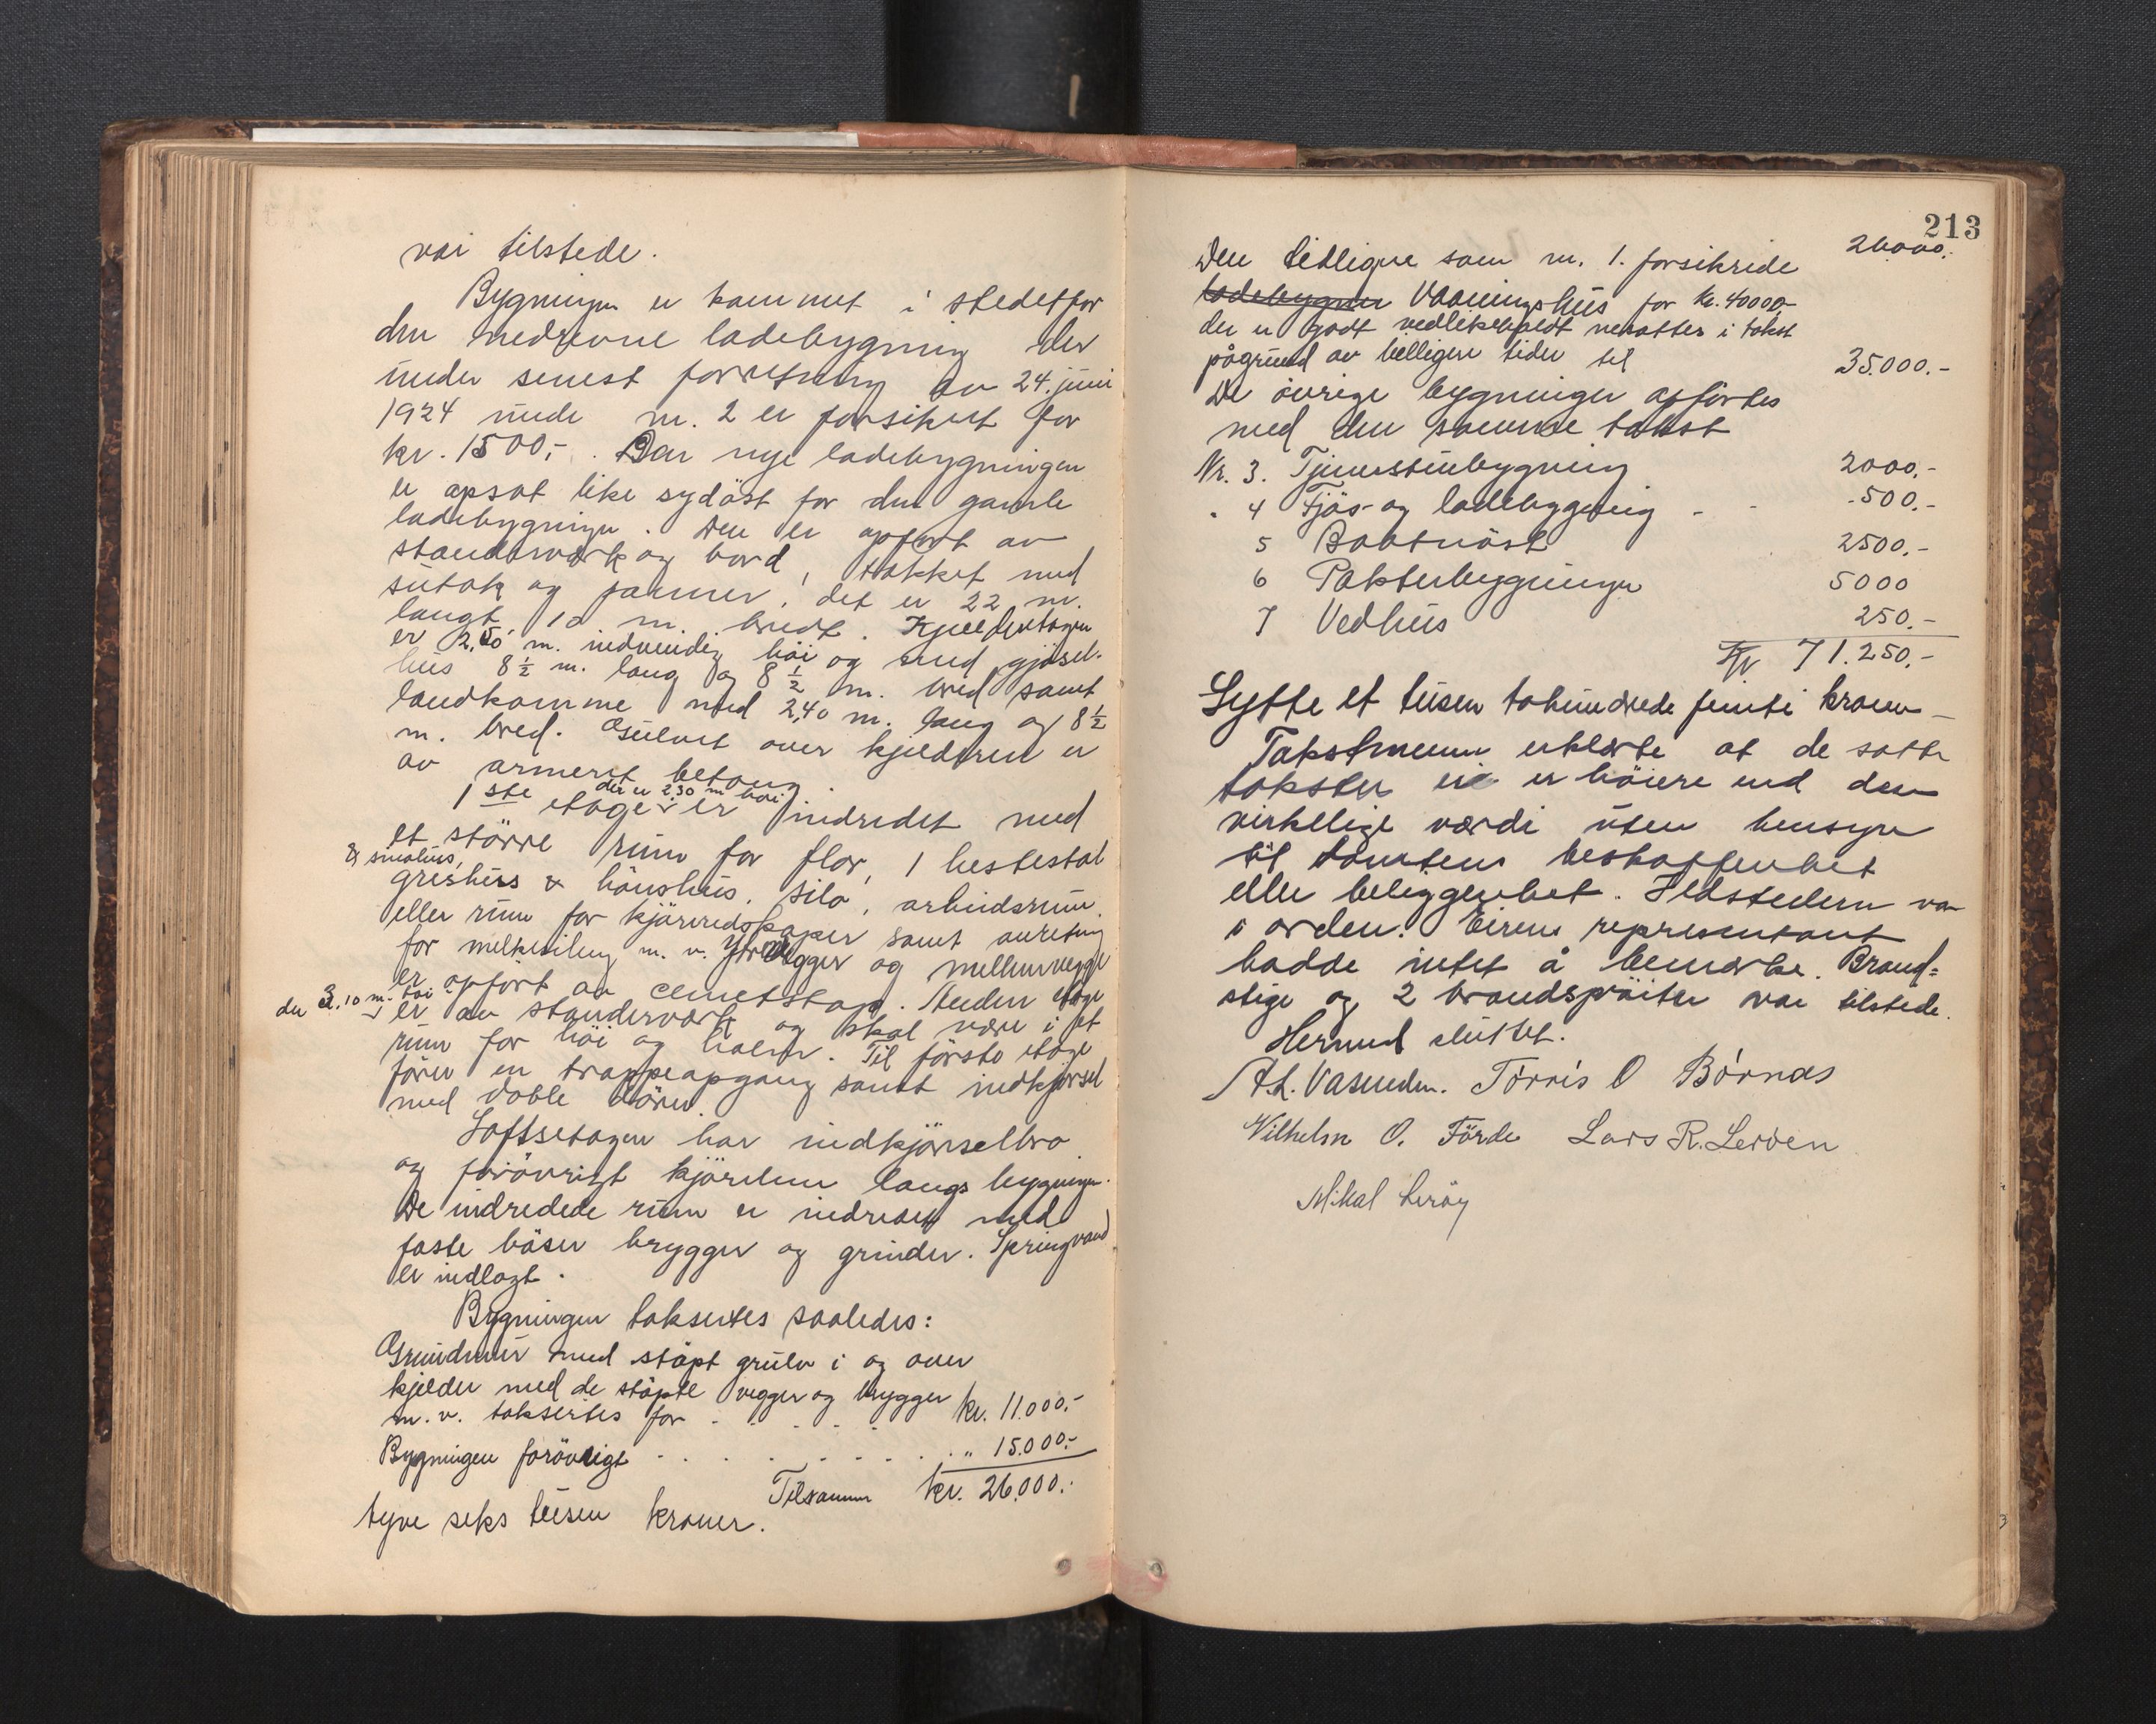 var tilstede.
Bygningen er kommet i stedetfor
den nedrevne ladebygning der
under senest forretning av 24. juni
1924 under nr. 2 er forsikret for
kr. 1500,-. Den nye ladebygningen
er opsat like sydöst for den gamle
ladebygningen. Den er opfört av
standerverk og bord, tækket med
sutak og panner, det er 22 m.
langt 10 m. bredt. Kjelderetagen
er 2,50 m. indvendig höi og med gjödsel-
hus 8½ m. lang og 8½ m. bred samt
landkamme med 2,40 m. lang og 8½
m. bred. Gulvet over kjelderen er
av armeret betong.
der er 2.30 m höi
1ste etage er indredet med
et större rum for flor, 1 hestestal
& smalhus,
grishus & hönshus, silo, arbeidsrum
eller rum for kjöreredskaper samt anretning
for melkesiling m. v. Yttervegger og mellemvegge
er opfört av cementstöp. Anden etage
der 3.10 m. höi er av standerverk og skal være i et
rum for höi og halm. Til förste etage
förer en trappeopgang samt indkjörsel
med doble dörer.
Loftsetagen har indkjörselbro
og forövrigt kjörebru langs bygningen.
De indredede rum er indredet med
faste båser brygger og grinder. Springvand
er indlagt.
Bygningen taksertes saaledes:
Grundmur med stöpt grulv i og over
kjelder med de stöpte vegger og brygger
m. v. taksertes for . . . . . kr. 11.000.-
Bygningen forövrigt . . . . . . . . " 15.000.-
Tilsammen kr. 26.000.-
tyve seks tusen kroner.
213
26.000.-
Den tidligere som nr. 1. forsikrede
ladebygnin Vaaningshus for kr. 40000,-
der er godt vedlikeholdt nedsattes i takst
pågrund av billigere tider til 35.000.-
De övrige bygninger opförtes
med den samme takst
Nr. 3. Tjenerstuebygning 2000.-
" 4 Fjös- og ladebygning - - 500.-
5 Baatnöst 2500.-
6 Pakterbygningen 5000
7 Vedhus 250.-
Kr 71.250.-
Sytti et tusen tohundrede femti kroner
Takstmenn erklærte at de satte
takster ei er höiere end den
virkelige værdi uten hensyn
til tomtens beskaffenhet
eller beliggenhet. Ildstederne var
i orden. Eirens representant
hadde intet å bemerke. Brand=
stige og 2 brandspröiter var tilstede.
Hermed sluttet.
Torris O Börnæs
Vilhelm O. Förde Lars R. Leröen
Mikal Leröy